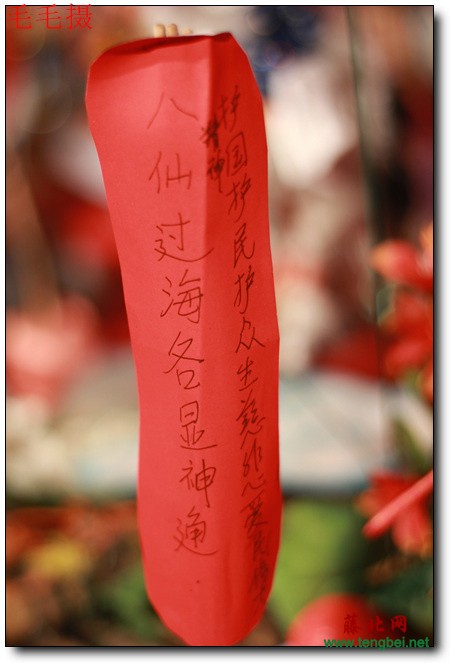 毛毛摄
护国护民护众生慈悲心爱民
精神
八仙过海各显神通
藤北网
www.tengbei.net